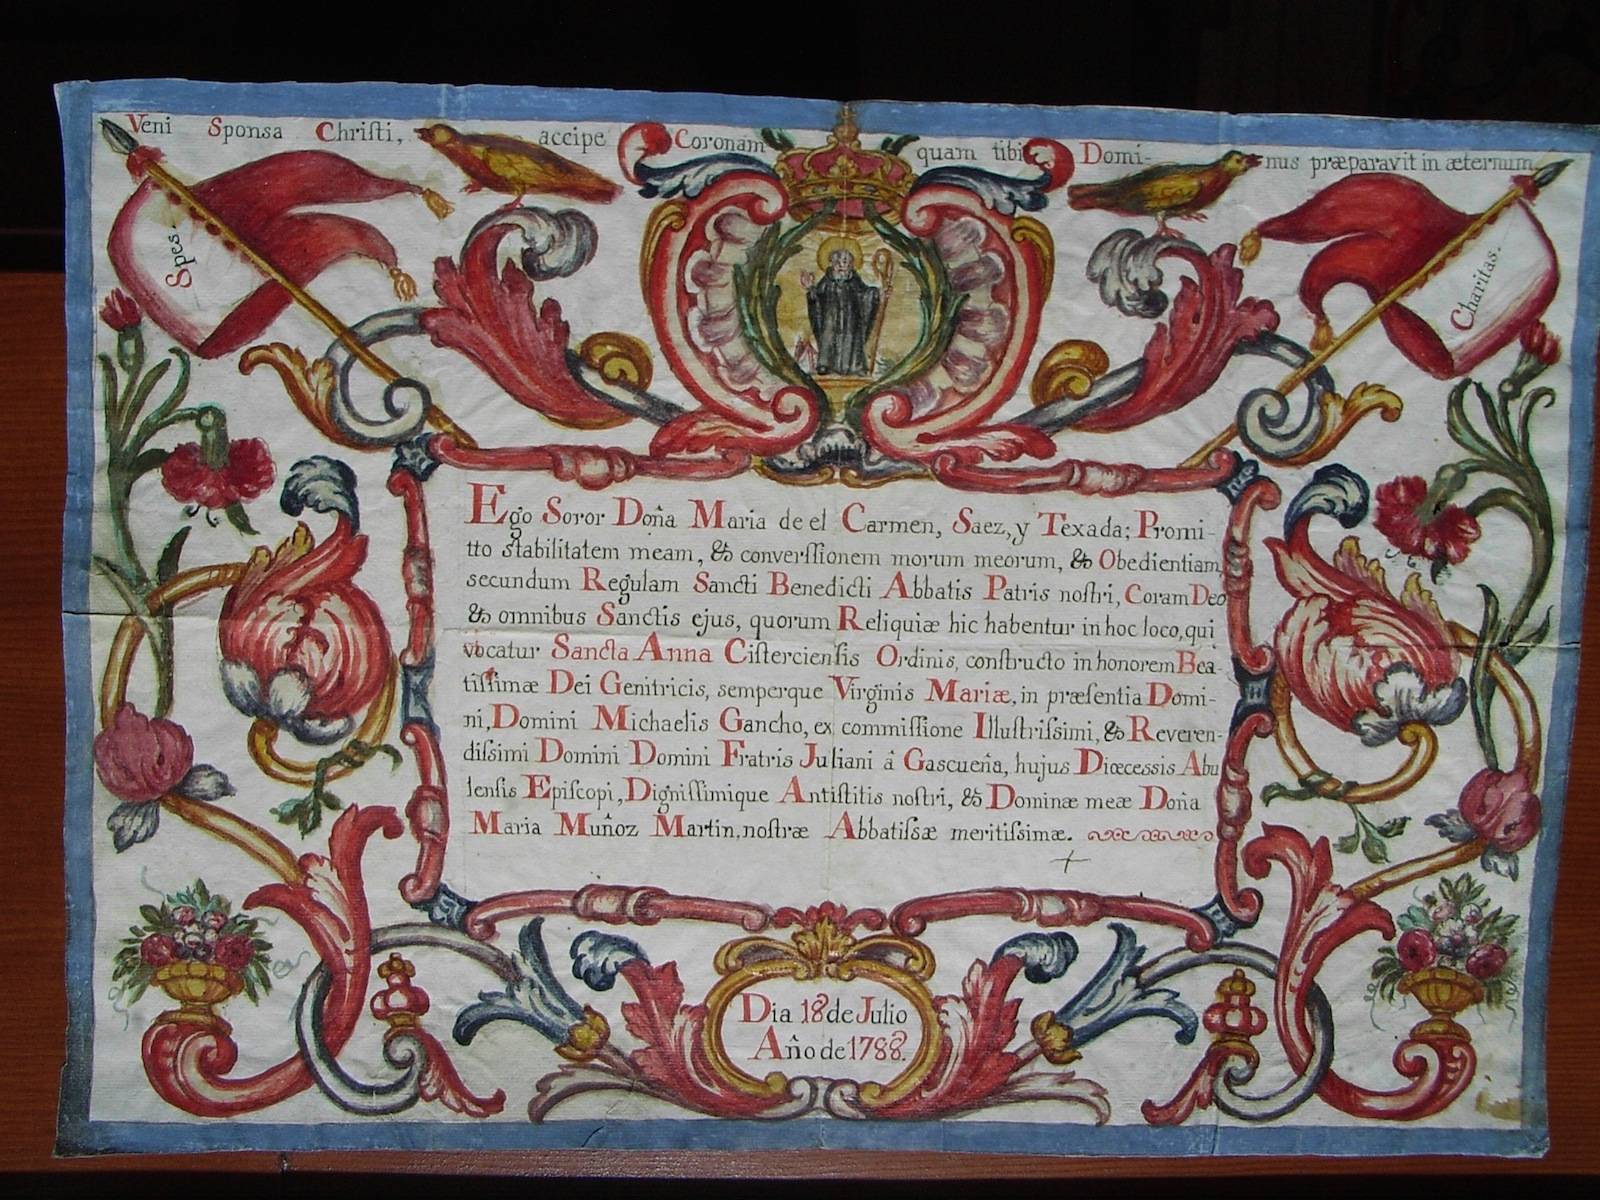 Veni Sponsa Chriſti, accipe Coronam quam tibi Domi- nus præparavit in æternum
Spes.
Charitas.
Ego Soror Doña Maria de el Carmen, Saez, y Texada; Promi-
tto stabilitatem meam, & converſſionem morum meorum, & Obedientiam,
secundum Regulam Sancti Benedicti Abbatis Patris noſtri, Coram Deo
& omnibus Sanctis ejus, quorum Reliquiæ hic habentur in hoc loco, qui
vocatur Sancta Anna Ciſtercienſis Ordinis, conſtructo in honorem Bea-
tiſſimæ Dei Genitricis, semperque Virginis Mariæ, in præſentia Domi-
ni, Domini Michaelis Gancho, ex commiſſione Illuſtriſsimi, & Reveren-
diſsimi Domini Domini Fratris Juliani â Gascueña, hujus Diœcessis Abu
lenſis Epiſcopi, Digniſſimique Antiſtitis noſtri, & Dominæ meæ Doña
Maria Muñoz Martin, noſtræ Abbatiſsæ meritiſsimæ.
Dia 18 de Julio
Año de 1788.